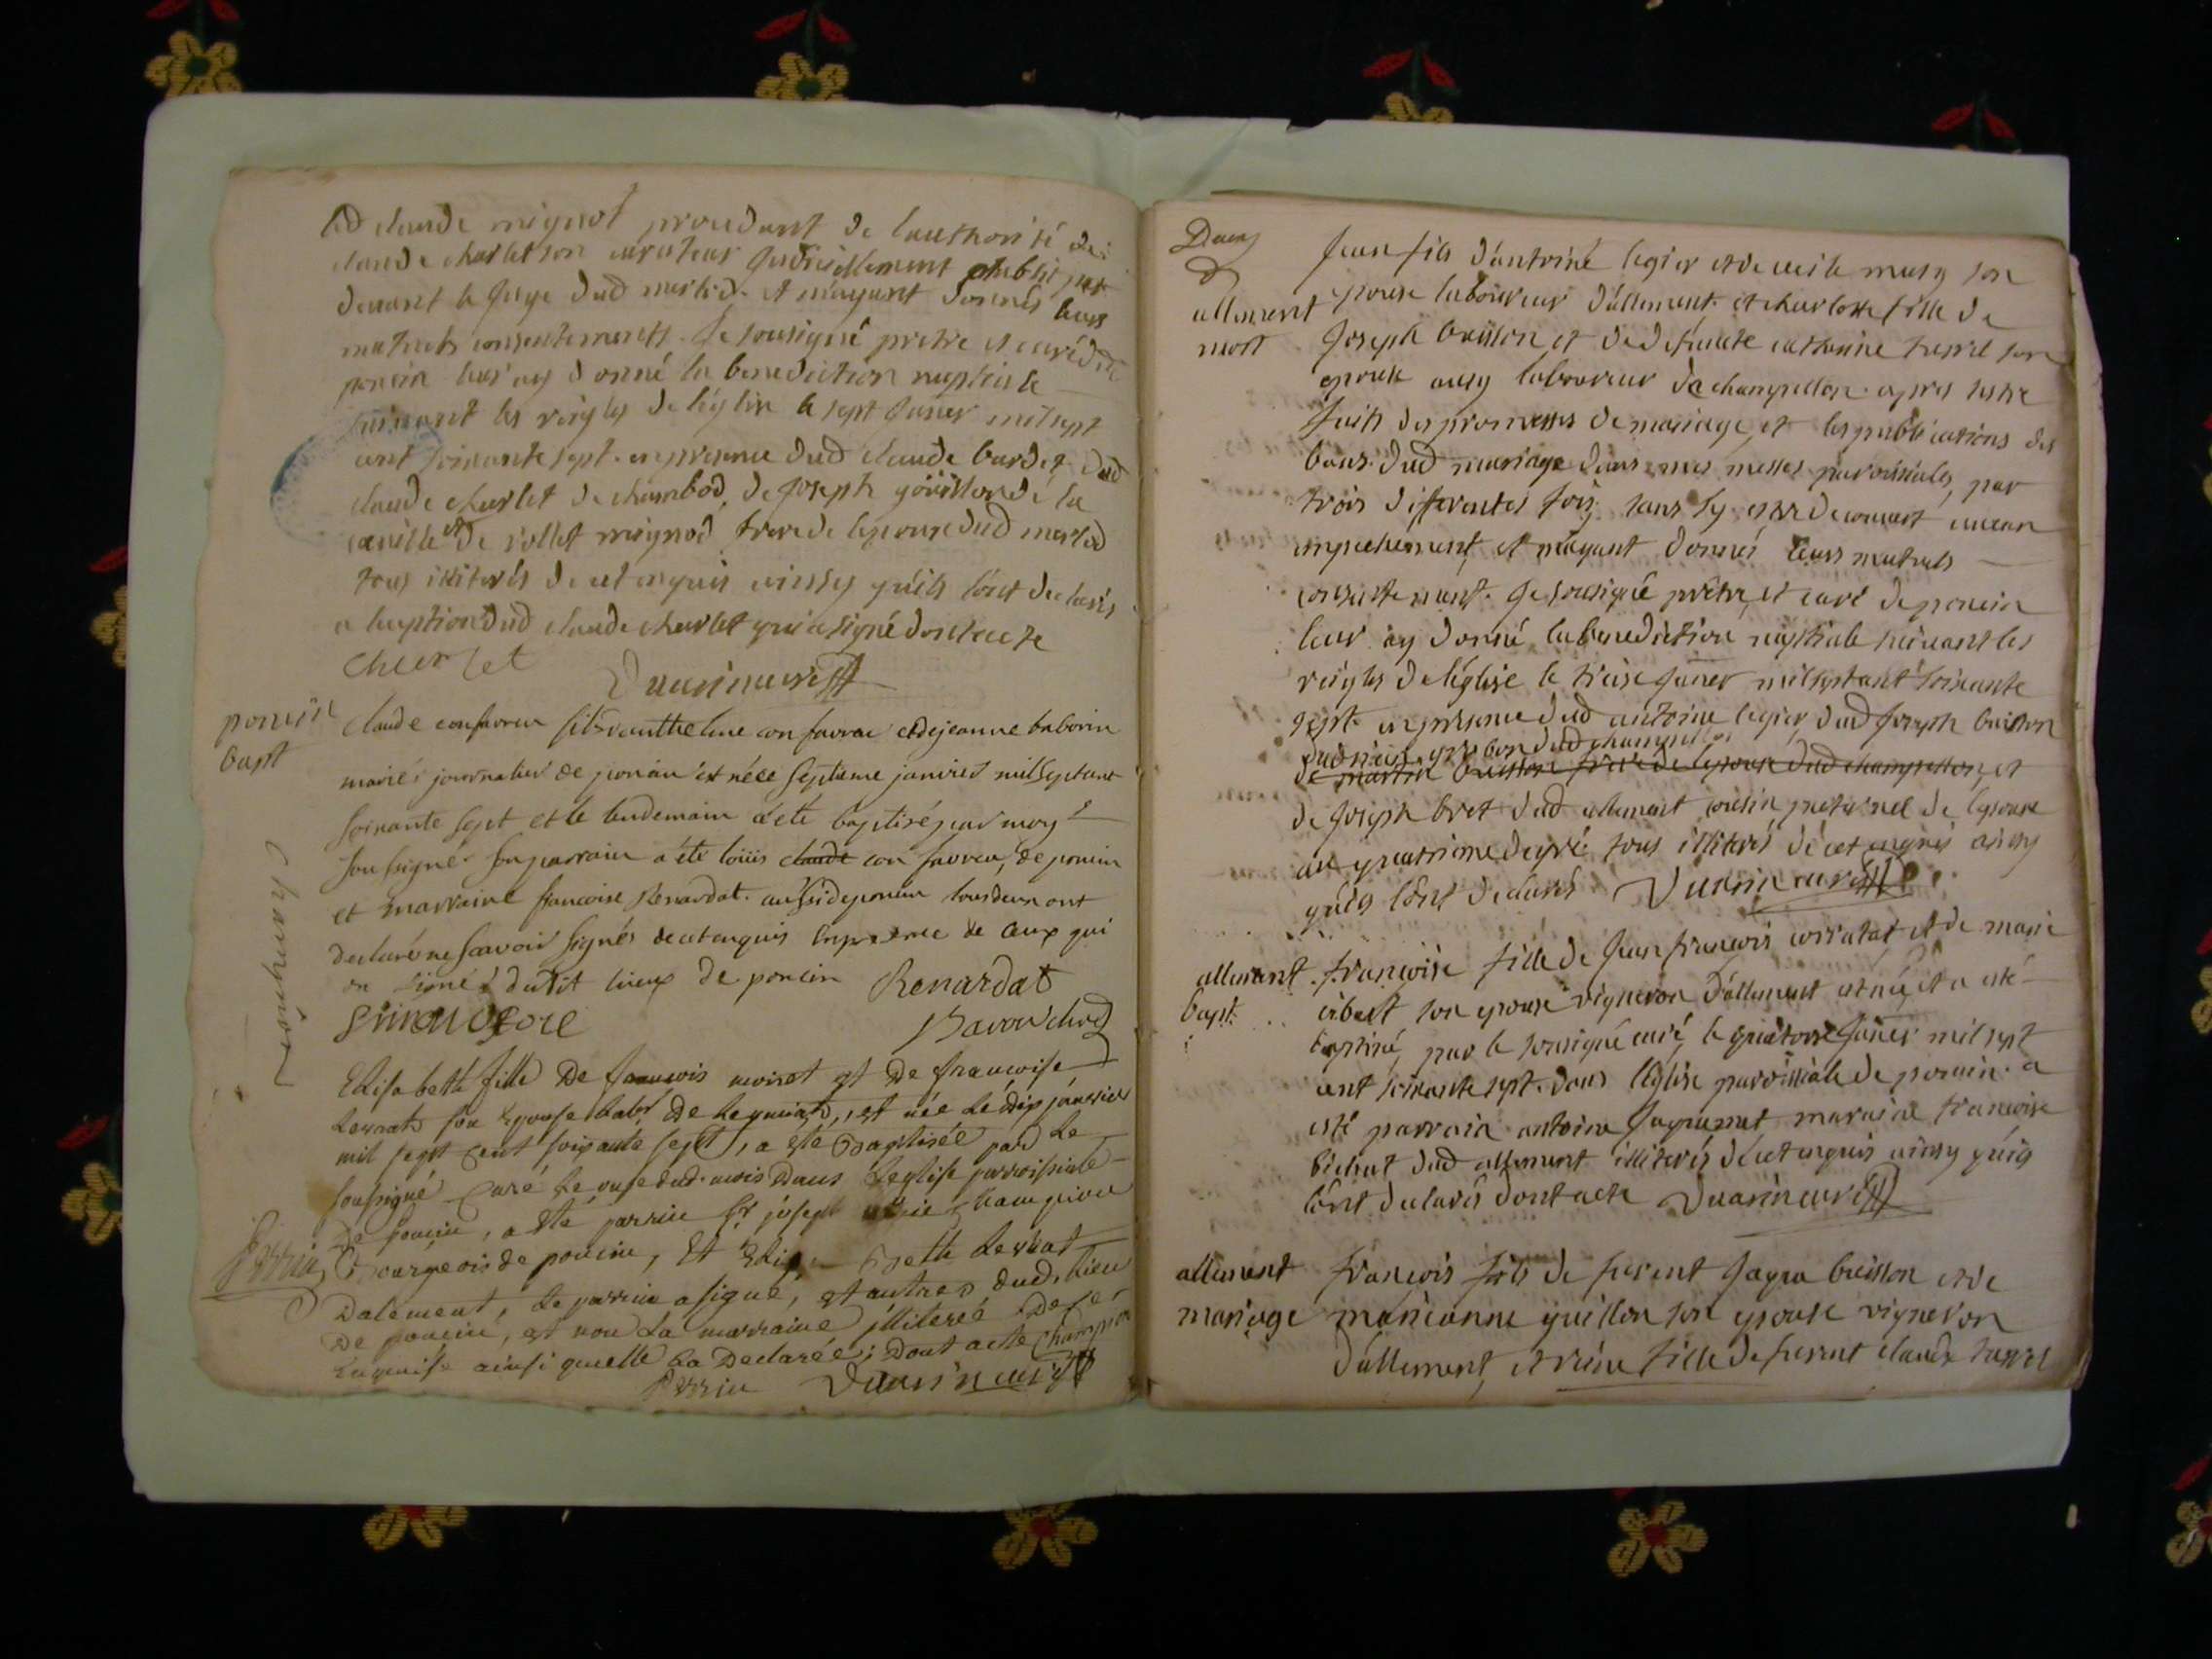 led claude mignot procedant de lauthorité de
claude charlet son curateur juridiellement etablit par
devant le juge dud mested. et m'ayant donnés leurs
mutuels consentements. Je sousigné pretre et curé de
poncin leur ay donné la benediction nuptiale
suivant les reigles de léglise le sept janier mil sept
cent soixante sept. en presence dud claude bardet dud
claude charlet de chambod, de joseph goüillon de la
et de rollet mignod frere de lepouse dud mested
tous illiterés de cet enquis ainssy qu'ils l'ont declarés
a lexeption dud claude charlet qui a signé dont acte
Charlet
Duarin curé
poncin
bapt
claude confavreu fils dauthelme con favreu et de jeanne baborin
mariés journalier de poncin est né le septieme janvier mil sept cent
soixante sept et le lendemain a eté baptisé par moy
soussigné. son parrain a été loüis claude con favreu, de poncin
et marraine francoise Renardat. aussi de poncin tous deux ont
declaré ne scavoir signés de cet enquis en presence de ceux qui
on signé dudit lieux de poncin Renardat
Savouchod
Champion
Elisabeth fille de francois moiret et de francoise
Lernat son epouse labr de leymiat, est née le dix janvier
mil sept cent soixante sept, a este baptisée par le
soussigné curé le onse dud. mois dans leglise parroissiale
de poncin, a esté parrin sr joseph marie champion
Perrin
Bourgeois de poncin, Et Elisabeth Lernat
dalement, le parrin a signé, et autres dud. lieu
de poncin, et non la marraine illiterée de ce
enquise ainsi quelle la declarée; dont acte Champion
Perrin Duarin curé
allement
mort
jean fils d'antoine legier et de cecile musy son
epouse laboureur d'allement. et charlotte fille de
joseph buisson et de defuncte catherine tassel son
epouse ausy laboureur de champeillon. apres sestre
faits des promesses de mariage, et les publications des
bans dud mariage dans mes messes paroissiales, par
trois differentes fois, sans sy estre decouvert aucun
empechement, et m'ayant donnés leurs mutuels
consentement. Je sousigné prêtre, et curé de poncin
leur ay donné la benediction nuptiale suivant les
reigles de léglise le treise janier mil sept cent soixante
sept. en presence dud antoine legier, dud joseph buisson
de martin buisson frere de lepouse dud champeillon, et
de joseph bret dud allement cousin paternel de lepouse
au quatrieme degré tous illiterés de cet enquis ainsy
qu'ils l'ont declarés Duarin curé
allement
bapt.
françoise fille de jean françois corratat et de marie
son epouse vigneron d'allement est née et a esté
baptisé, par le sousigné curé, le quatorse janier mil sept
cent soixante sept. dans l'église parroissiale de poncin. a
esté parrain antoine maraine francoise
dud allement illiterés de cet enquis ainsy qu'ils
l'ont declarés dont acte Duarin curé
allement
mariage
françois fils de furent jaque buisson et de
marieanne guillon son epouse vigneron
d'allement, et reine fille de furent claude tassel